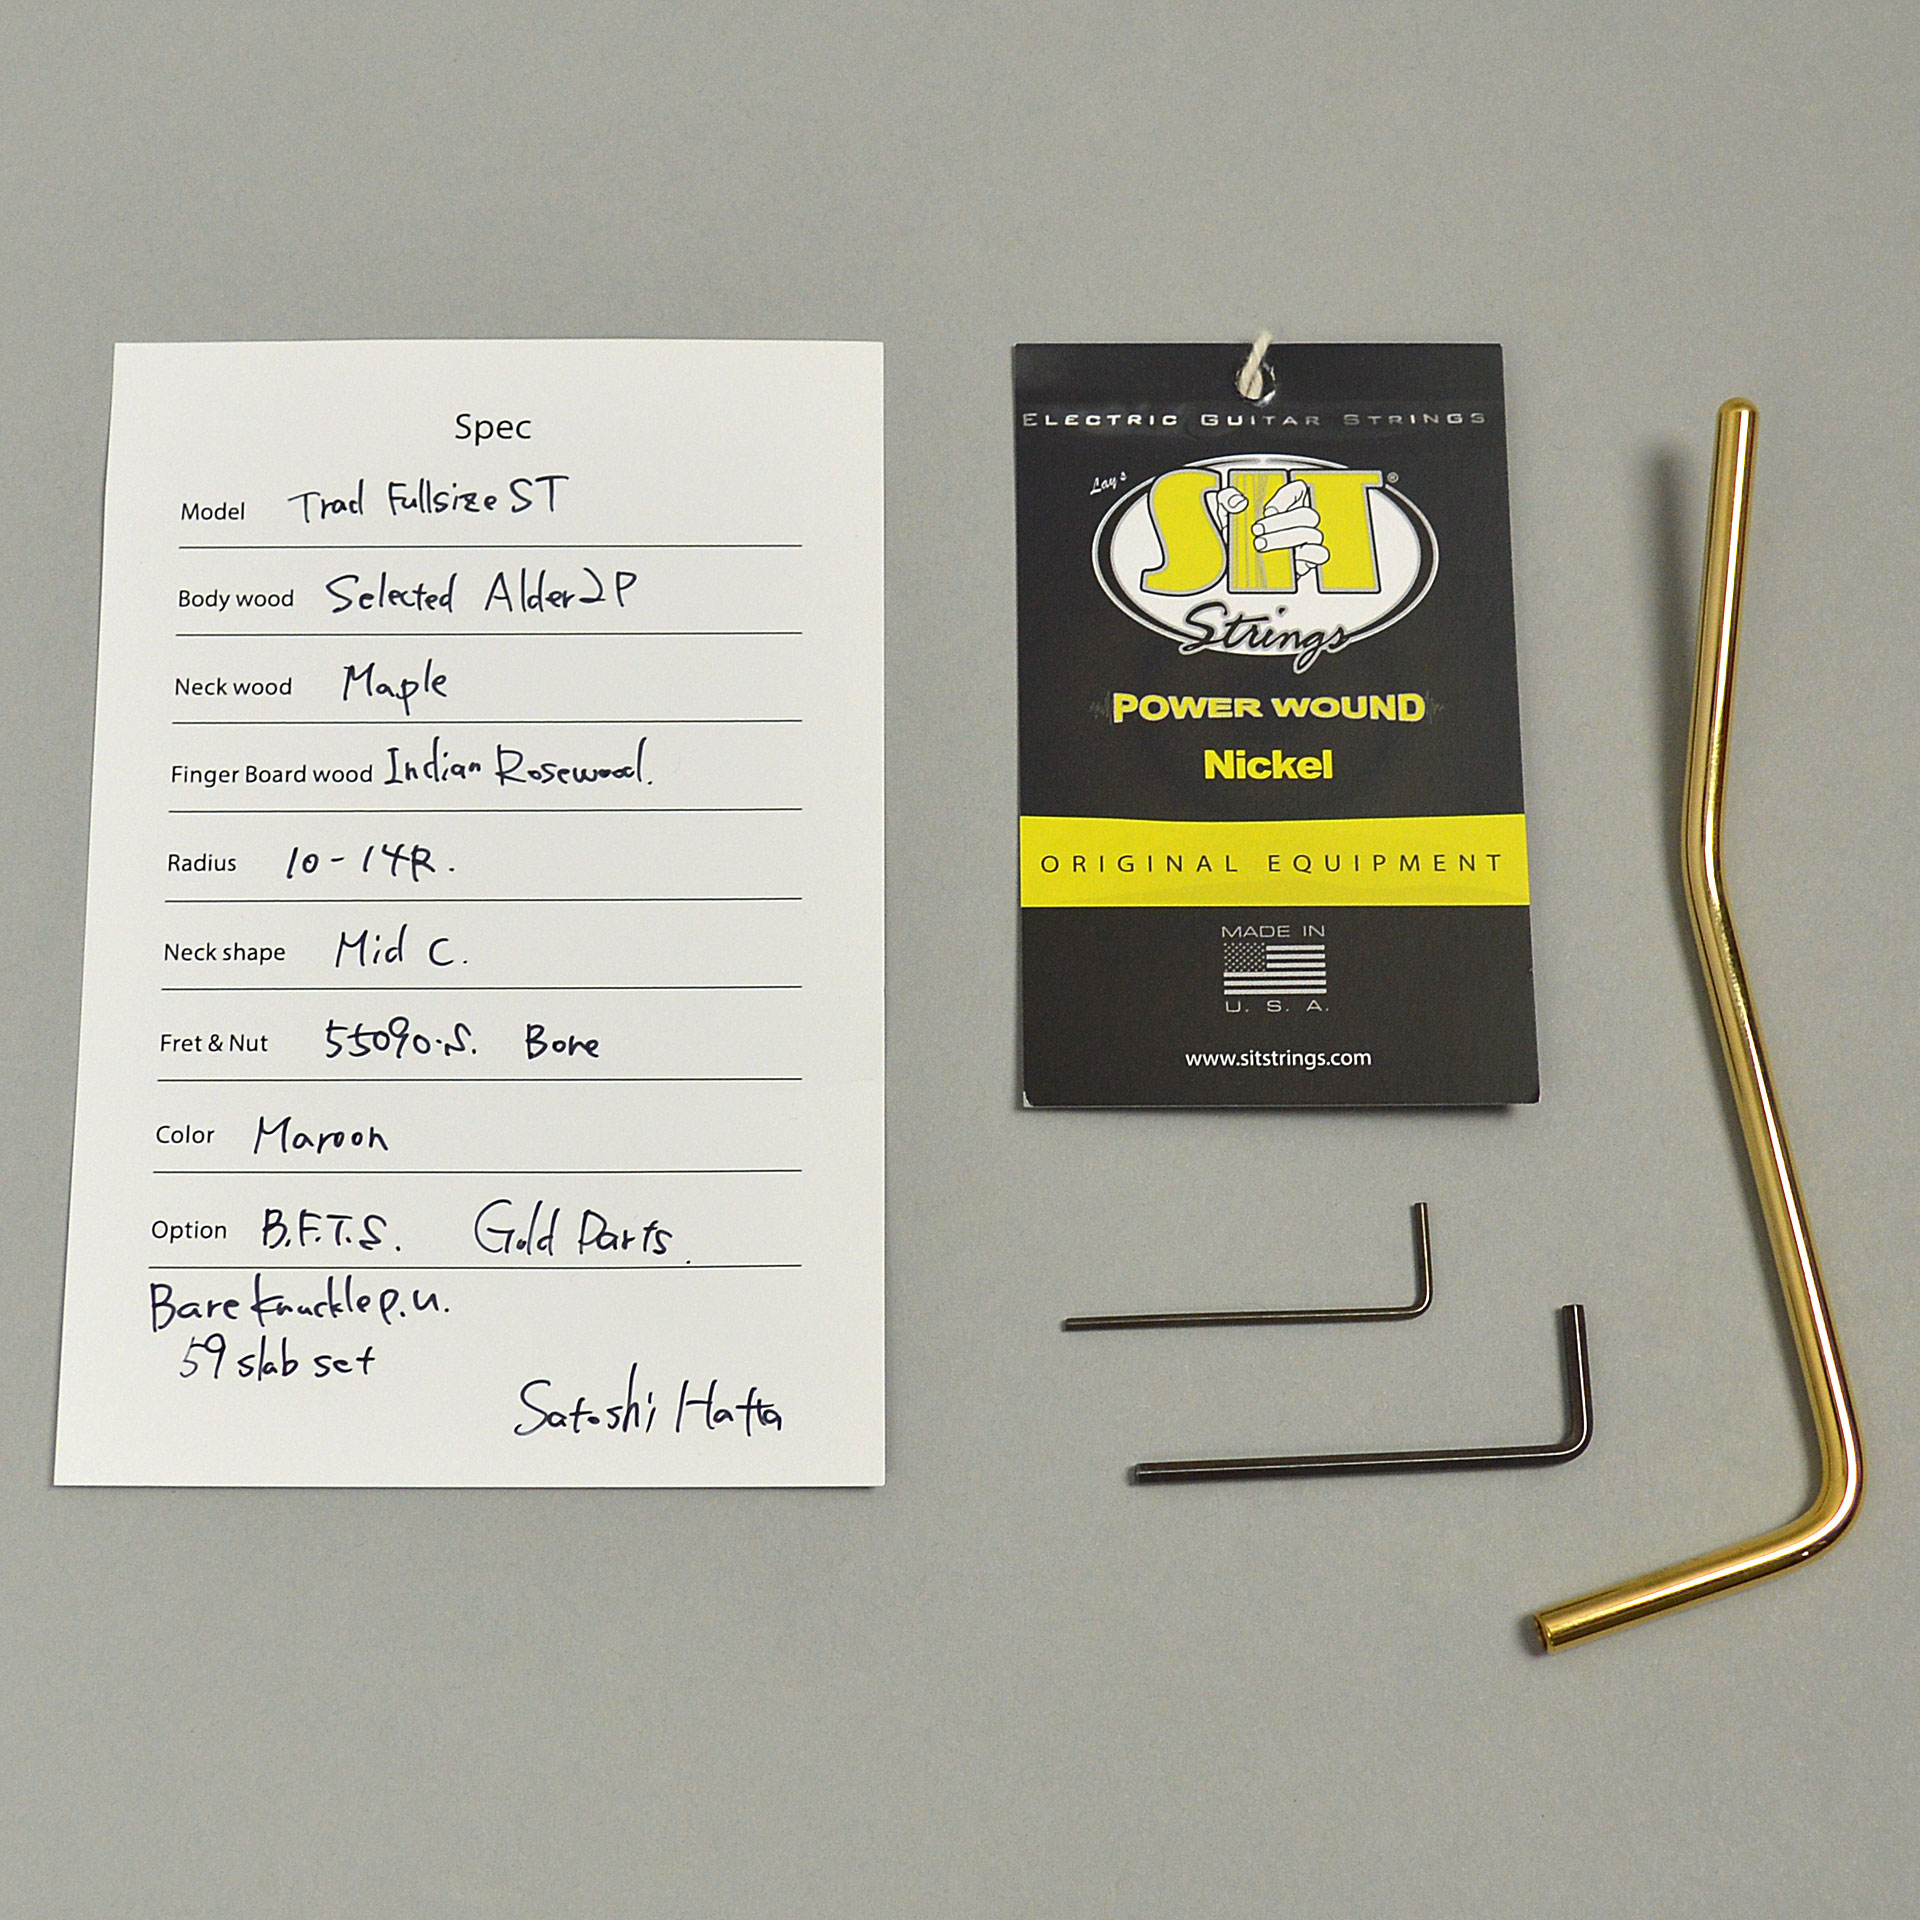 Spec
Model Trad Fullsize ST
Body wood Selected Alder 2P
Neck wood Maple
Finger Board wood Indian Rosewood.
Radius 10-14R.
Neck shape Mid C.
Fret & Nut 55090-S. Bone
Color Maroon
Option B.F.T.S. Gold Parts.
Bareknuckle p.u.
59 slab set
Satoshi Hatta
ELECTRIC GUITAR STRINGS
Lay's
SIT®
Strings
POWER WOUND
Nickel
ORIGINAL EQUIPMENT
MADE IN
U. S. A.
www.sitstrings.com